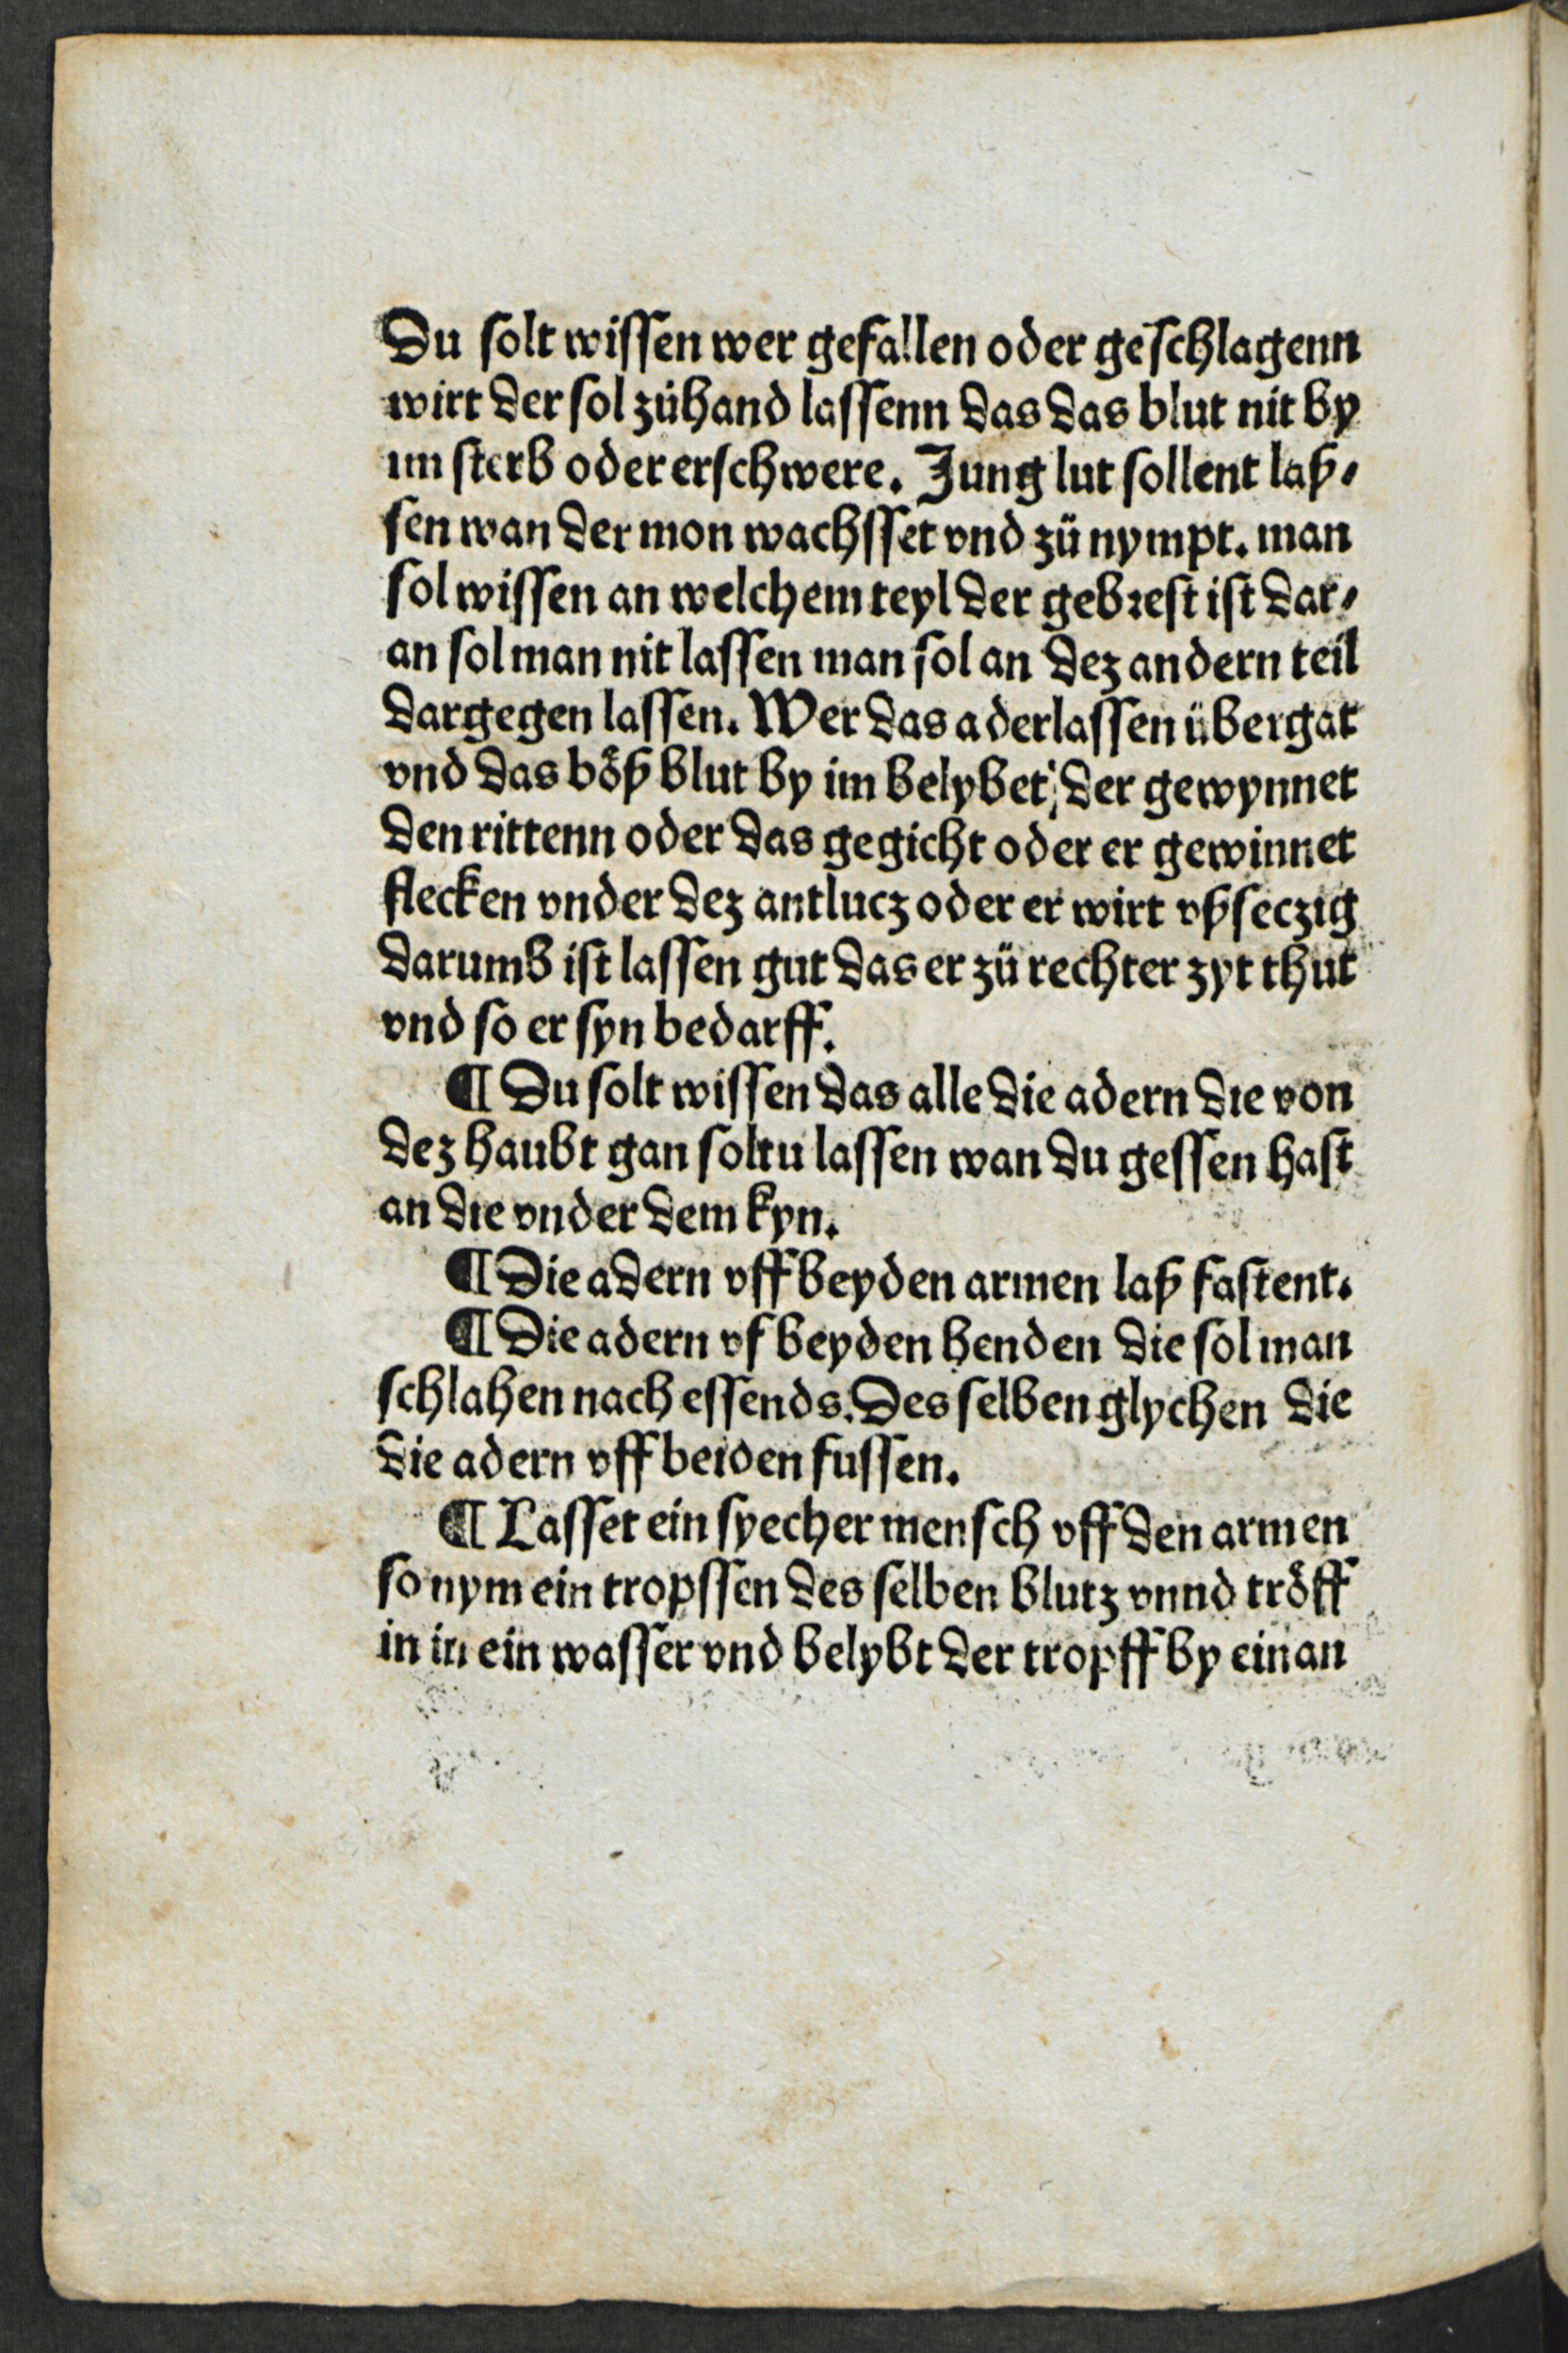 Du solt wissen wer gefallen oder geschlagenn
wirt der sol zühand lassenn das das blut nit by
im sterb oder erschwere. Jung lut sollent laß⸗
sen wan der mon wachsset vnd zü nympt. man
sol wissen an welchem teyl der gebrest ist dar⸗
an sol man nit lassen man sol an dez andern teil
dargegen lassen. Wer das aderlassen übergat
vnd das böß blut by im belybet, der gewynnet
den rittenn oder das gegicht oder er gewinnet
flecken vnder dez antlucz oder er wirt vßseczig
darumb ist lassen gut das er zü rechter zyt thut
vnd so er syn bedarff.
¶ Du solt wissen das alle die adern die von
dez haubt gan soltu lassen wan du gessen hast
an die vnder dem kyn.
¶ Die adern vff beyden armen laß fastent.
¶ Die adern vf beyden henden die sol man
schlahen nach essends. Des selben glychen die
die adern vff beiden fussen.
¶ Lasset ein syecher mensch vff den armen
so nym ein tropssen des selben blutz vnnd tröff
in in ein wasser vnd belybt der tropff by einan